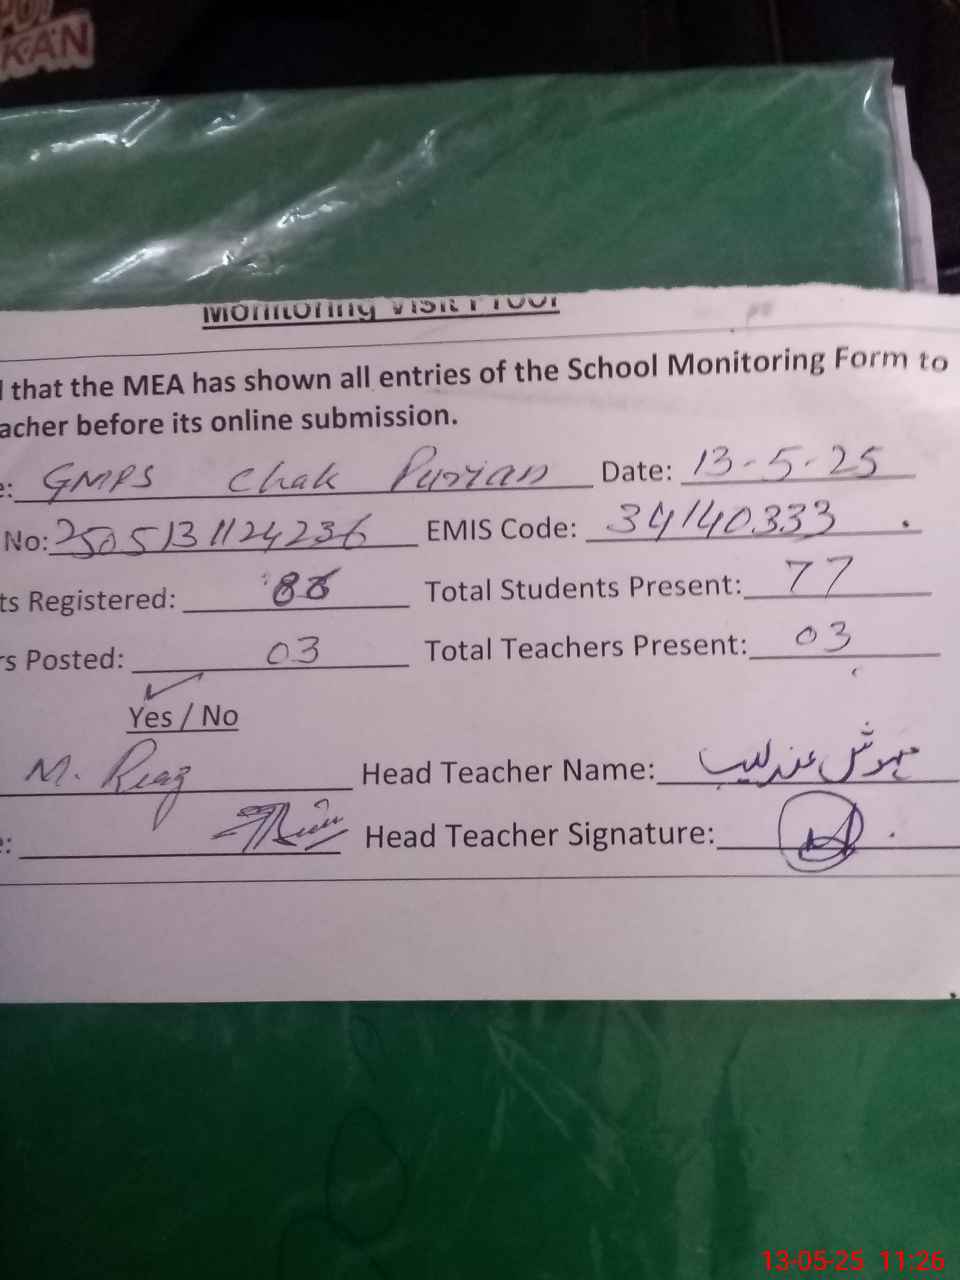 KAN
Monitoring Visit Proof
that the MEA has shown all entries of the School Monitoring Form to
acher before its online submission.
e: GMPS Chak Purian Date: 13-5-25
No: 2505131124236 EMIS Code: 34140333
ts Registered: 88 Total Students Present: 77
rs Posted: 03 Total Teachers Present: 03
Yes / No
M. Riaz Head Teacher Name: مہوش عندلیب
e: Head Teacher Signature:
13-05-25 11:26